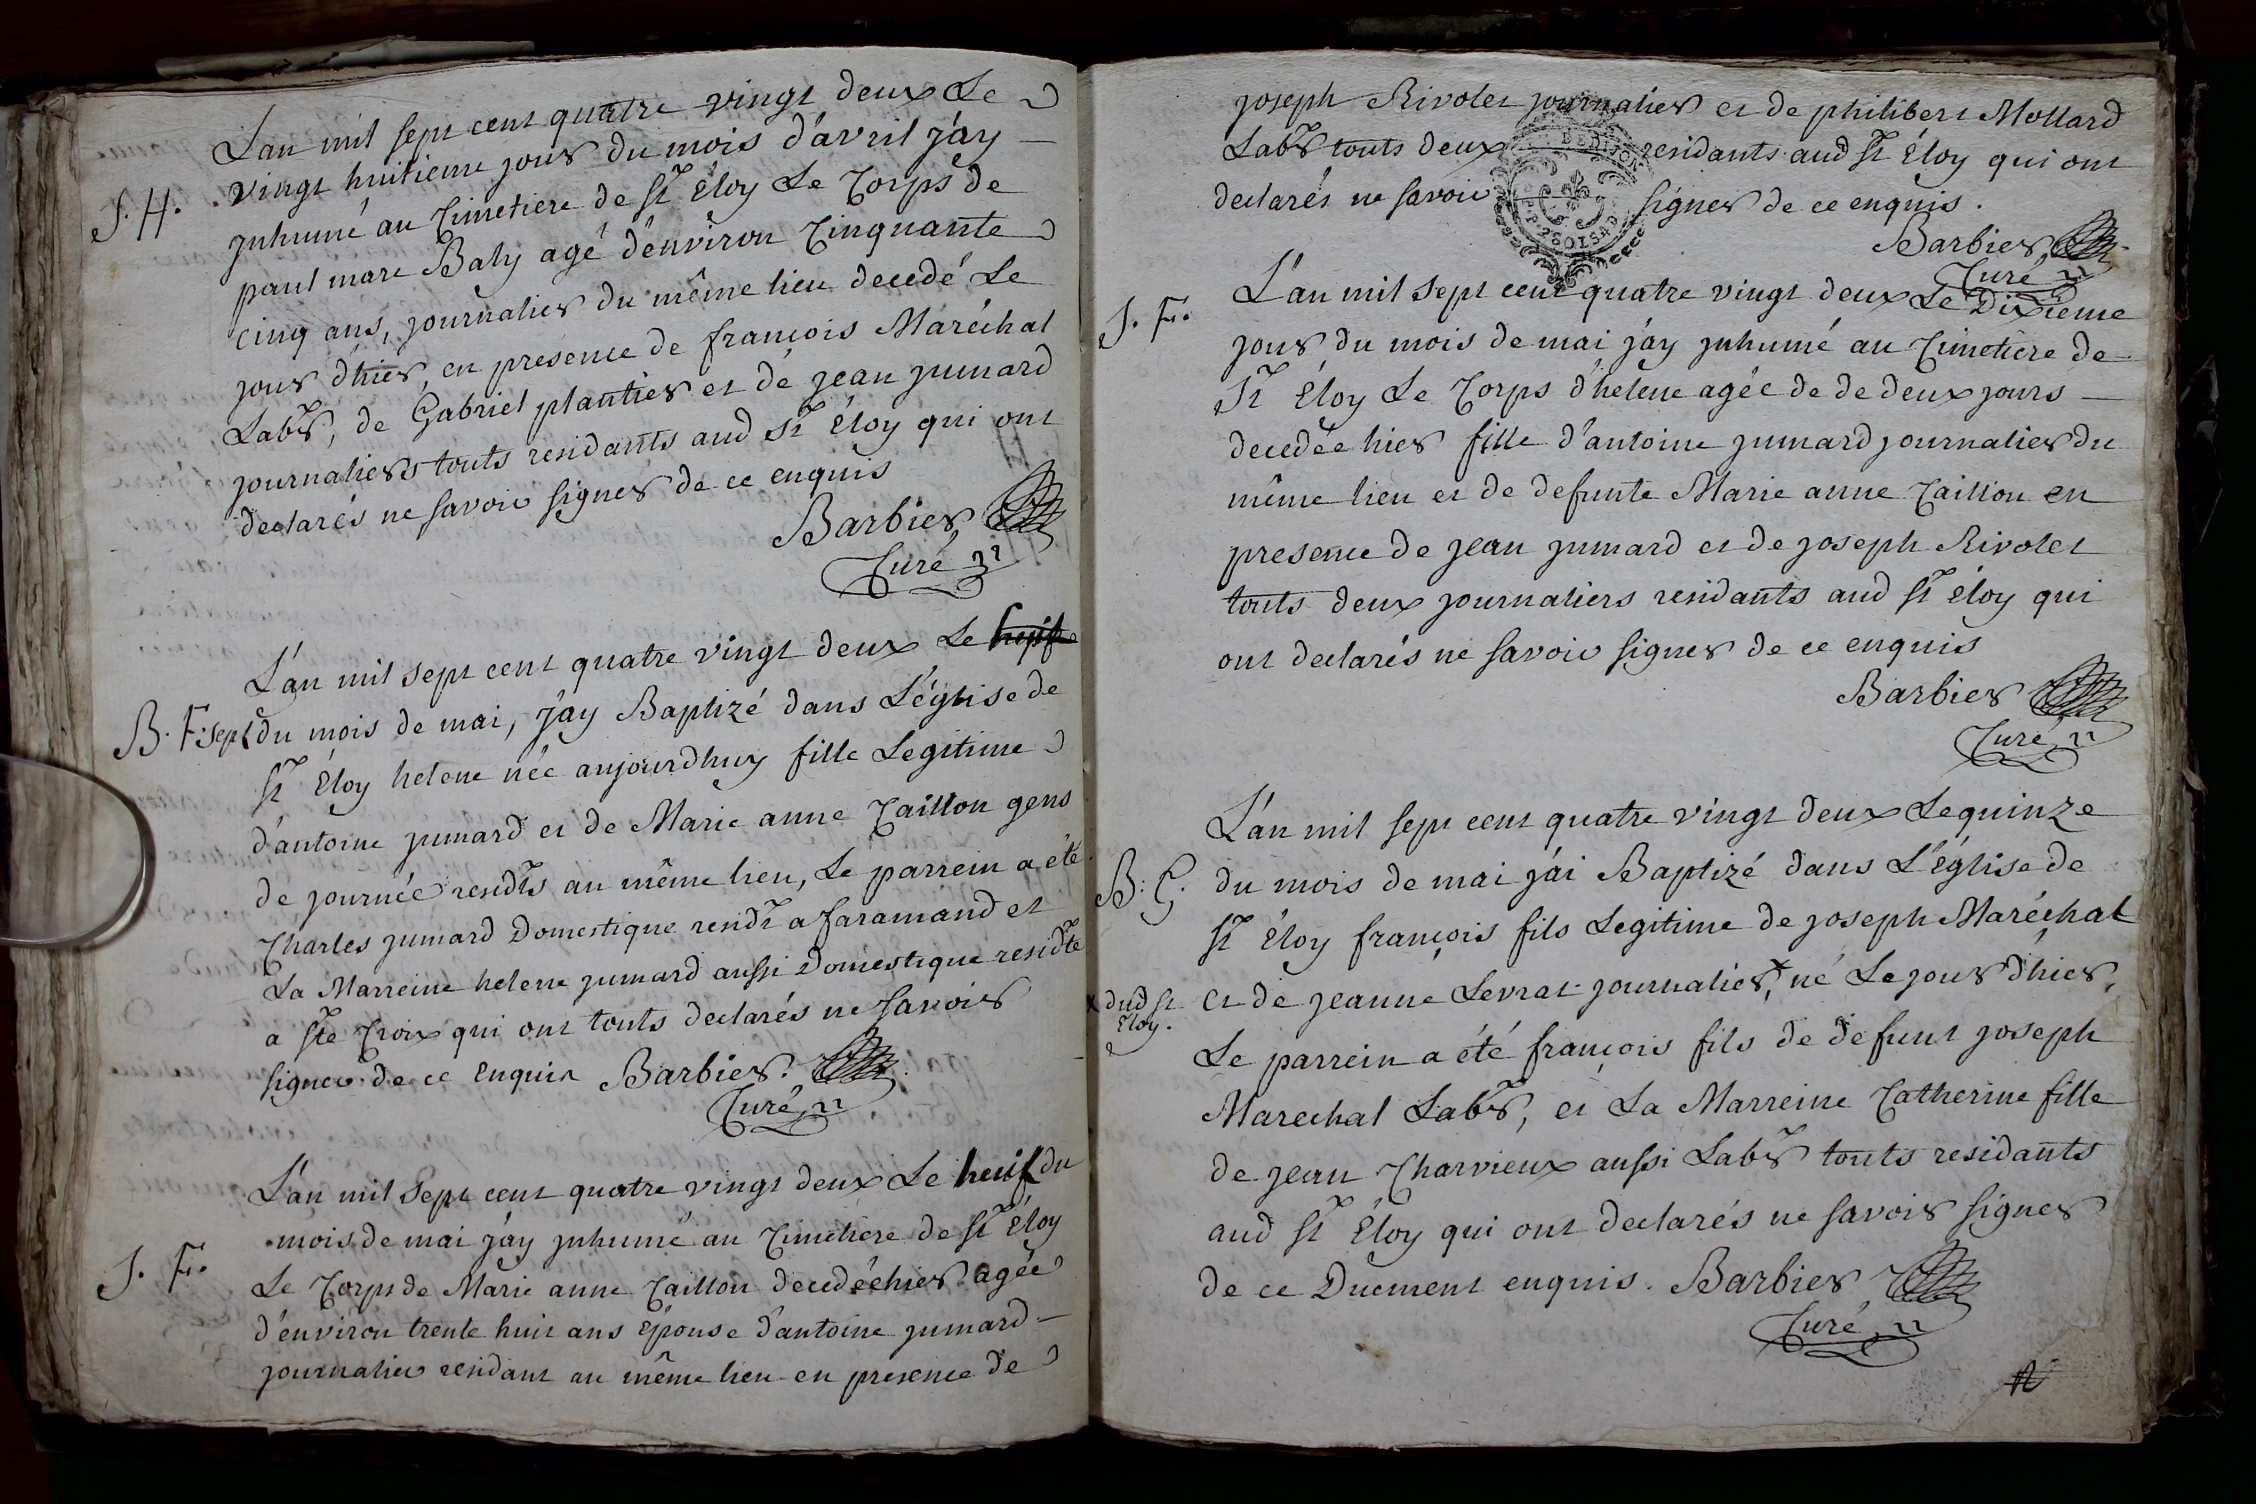 L'an mil sept cent quatre vingt deux Le
vingt huitieme jour du mois d'avril j'ay
S. H.
jnhumé au Cimetiere de St Éloy Le Corps de
paul marc Baly agé d'environ Cinquante
cinq ans, journalier du même lieu decedé Le
jour d'hier, en presence de françois Maréchal
Labr, de Gabriel plantier et de jean jumard
journaliers touts residants aud St Éloy qui ont
declarés ne savoir signer de ce enquis
Barbier
Curé
L'an mil sept cent quatre vingt deux Le
B. F. sept du mois de mai, j'ay Baptizé dans L'église de
St Éloy helene née aujourdhuy fille Legitime
d'antoine jumard et de Marie anne Caillon gens
de journée residts au même lieu, Le parrein a été
Charles jumard Domestique residt a faramand et
La Marreine helene jumard aussi Domestique residte
a Ste Croix qui ont touts declarés ne savoir
signer de ce enquis Barbier.
Curé
L'an mil sept cent quatre vingt deux Le neuf du
mois de mai j'ay jnhumé au Cimetiere de St Éloy
S. F.
Le Corps de Marie anne Caillon decedée hier agée
d'environ trente huit ans épouse d'antoine jumard
journalier residant au même lieu en presence de
joseph Rivolet journalier et de philibert Mollard
Labr touts deux residants aud St Éloy qui ont
declarés ne savoir signer de ce enquis.
Barbier
Curé
L'an mil sept cent quatre vingt deux Le Dixieme
S. F.
jour du mois de mai j'ay jnhumé au Cimetiere de
St Éloy Le Corps d'helene agée de de deux jours
decedée hier fille d'antoine jumard journalier du
même lieu et de defunte Marie anne Caillon en
presence de jean jumard et de joseph Rivolet
touts deux journaliers residants aud St éloy qui
ont declarés ne savoir signer de ce enquis
Barbier
Curé
L'an mil sept cent quatre vingt deux Le quinze
B. G. du mois de mai j'ai Baptizé dans L'église de
St Éloy françois fils Legitime de joseph Maréchal
et de jeanne Levrat journalier,x né Le jour d'hier,
x dud St
Eloy.
Le parrein a été françois fils de defunt joseph
Marechal Labr, et La Marreine Catherine fille
de jean Charvieux aussi Labr touts residants
aud St Éloy qui ont declarés ne savoir signer
de ce Duement enquis. Barbier
Curé